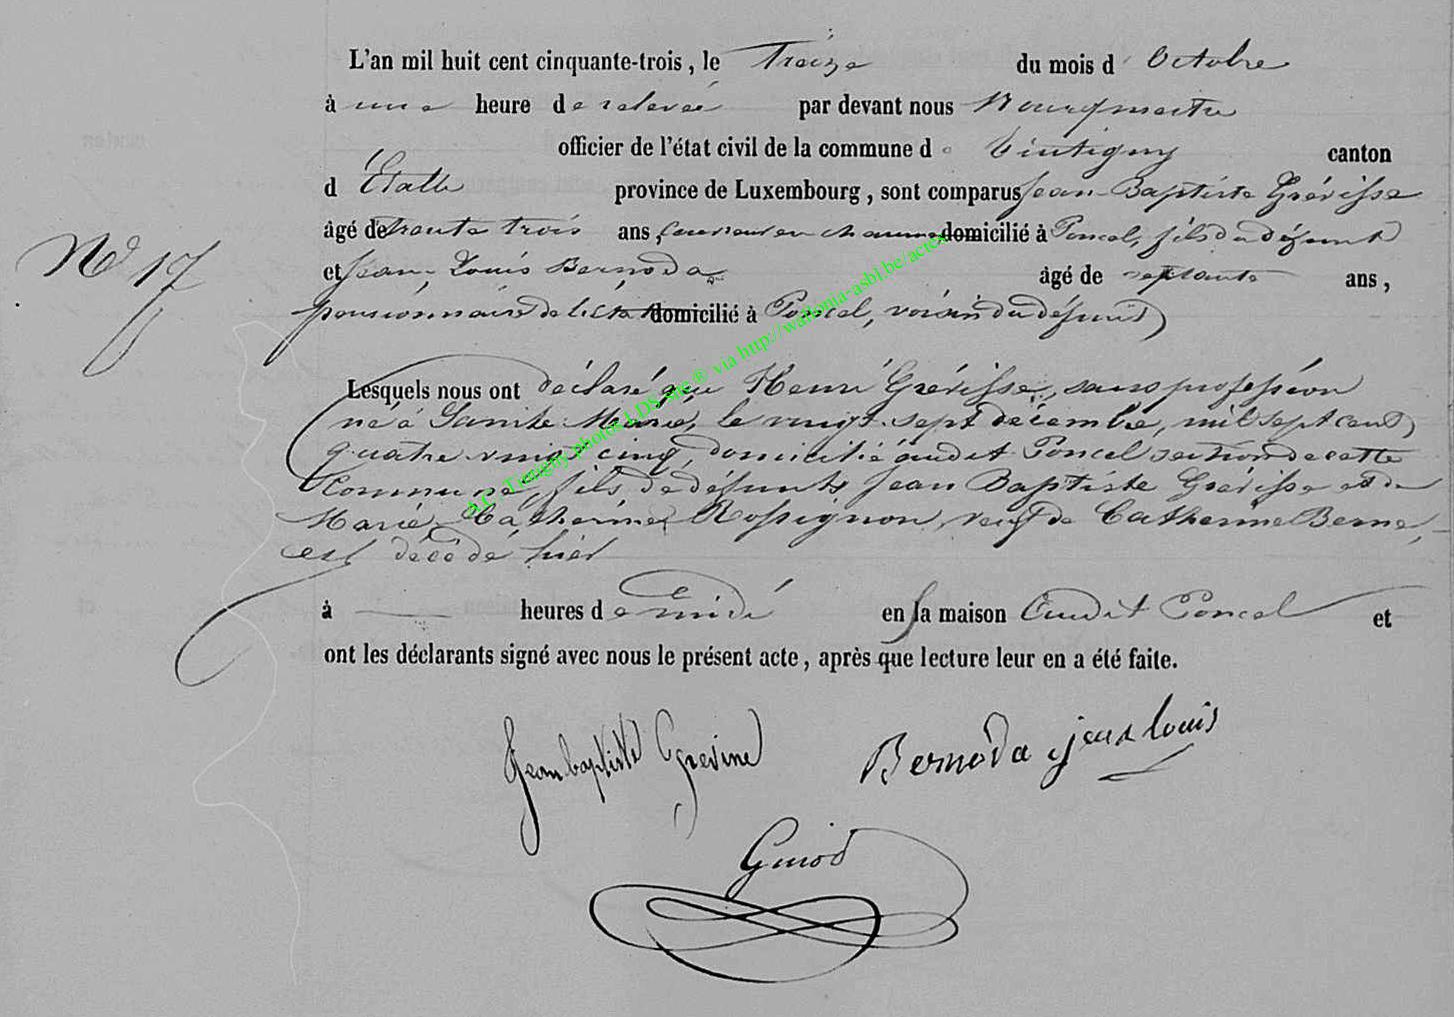 L'an mil huit cent cinquante-trois, le Treize du mois d'Octobre
à une heure de relevée par devant nous Bourgmestre
officier de l'état civil de la commune de Tintigny canton
d'Etalle province de Luxembourg, sont comparus Jean-Baptiste Grévisse
âgé de trente trois ans, couvreur en chaume domicilié à Poncel, fils du défunt
N° 17
et Jean-Louis Bernoda âgé de septante ans,
pensionnaire de l'état domicilié à Poncel, voisin du défunt
Lesquels nous ont déclaré que Henri Grévisse, sans profession
né à Sainte Marie, le vingt-sept décembre, mil sept cent
quatre vingt cinq, domicilié audit Poncel section de cette
Commune, fils de défunts Jean Baptiste Grévisse et de
Marie Catherine Rossignon, veuf de Catherine Berne,
est décédé hier
à heures de midi en sa maison audit Poncel et
ont les déclarants signé avec nous le présent acte, après que lecture leur en a été faite.
Jean baptiste
Bernoda jean louis
A.C. Tintigny photos LDS, src ® via http://wallonia-asbl.be/actes